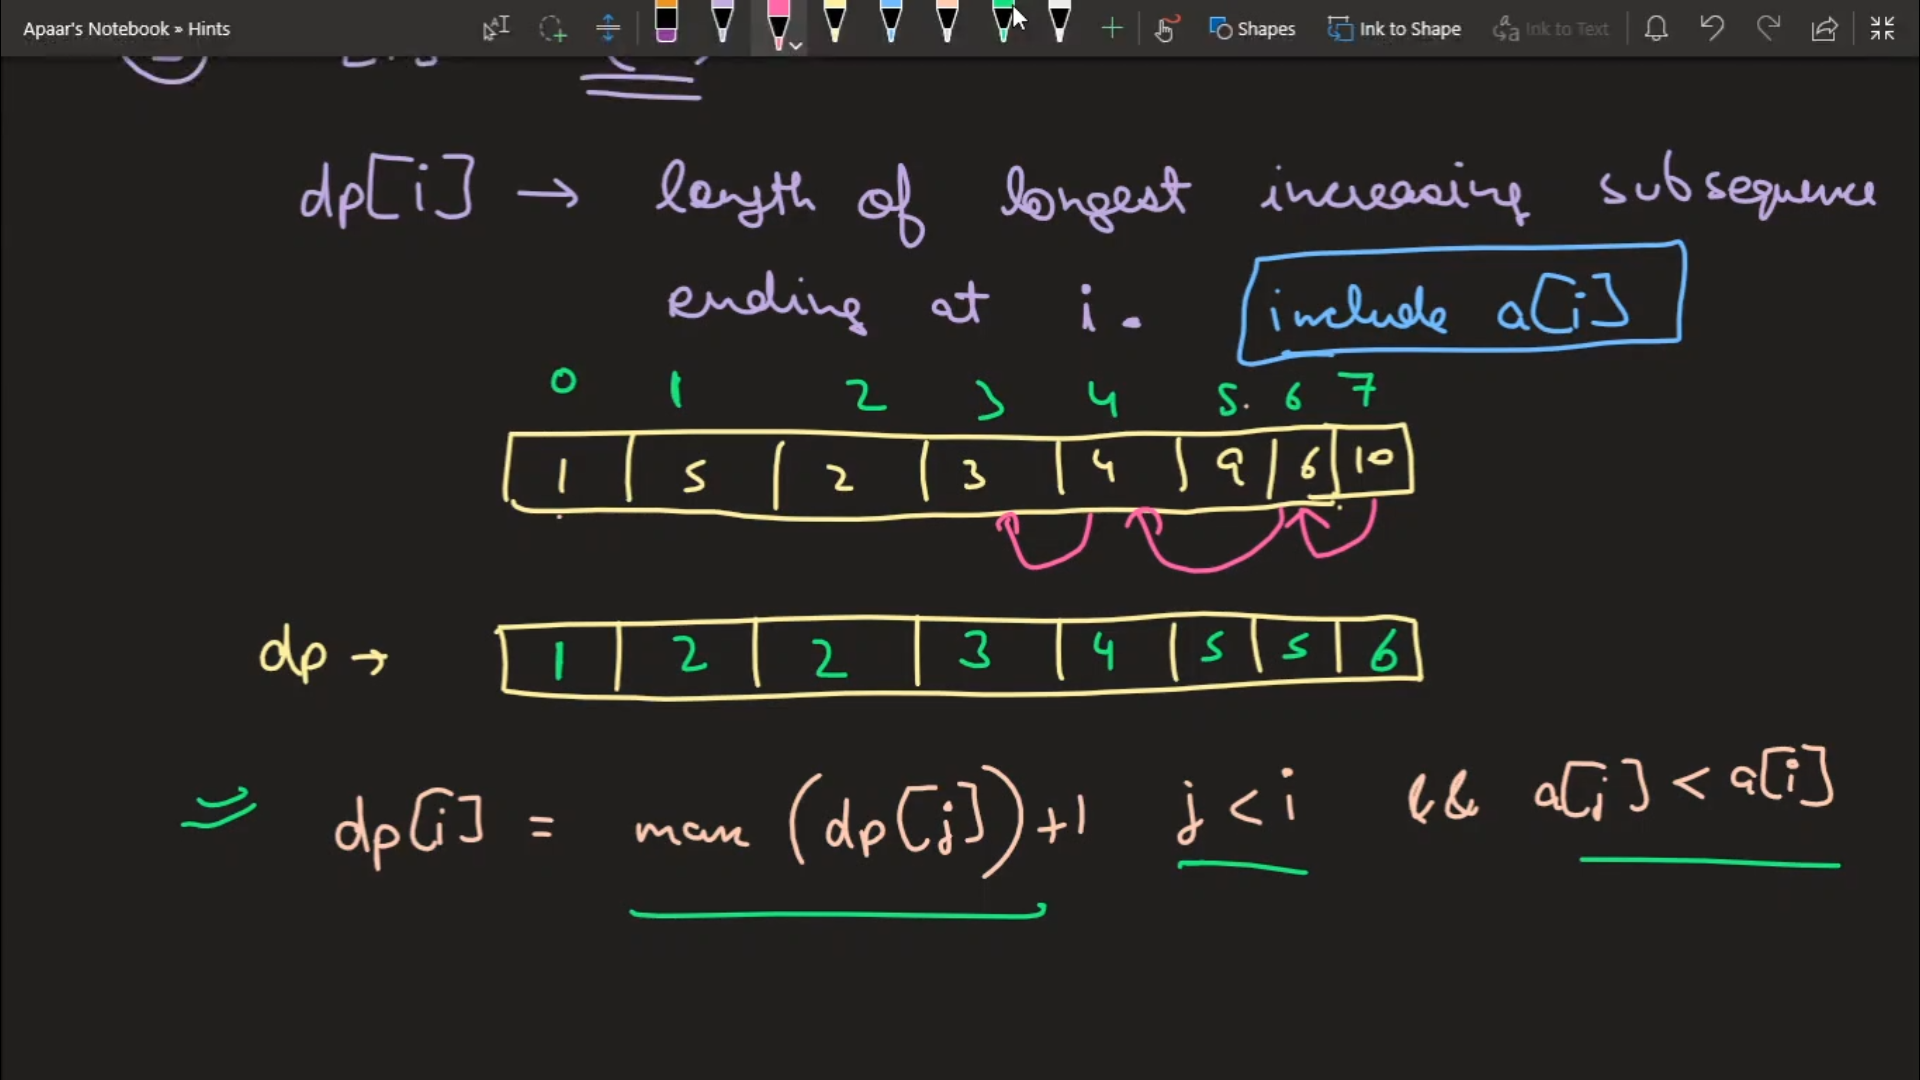 Apaar's Notebook » Hints
Shapes Ink to Shape Ink to Text
dp[i] → length of longest increasing subsequence
ending at i. include a[i]
0 1 2 3 4 5 6 7
1 5 2 3 4 9 6 10
dp → 1 2 2 3 4 5 5 6
dp[i] = max (dp[j])+1 j < i && a[j] < a[i]